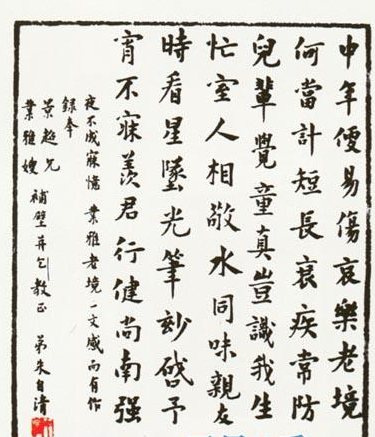 中年便易傷哀樂老境
何當計短長衰疾常防
兒輩覺童真豈識我生
忙室人相敬水同味親友
時看星墜光筆玅啓予
宵不寐羨君行健尚南强
夜不成寐憶 業雅老境一文感而有作
錄奉
景超兄
業雅嫂
補壁并乞教正 弟朱自清